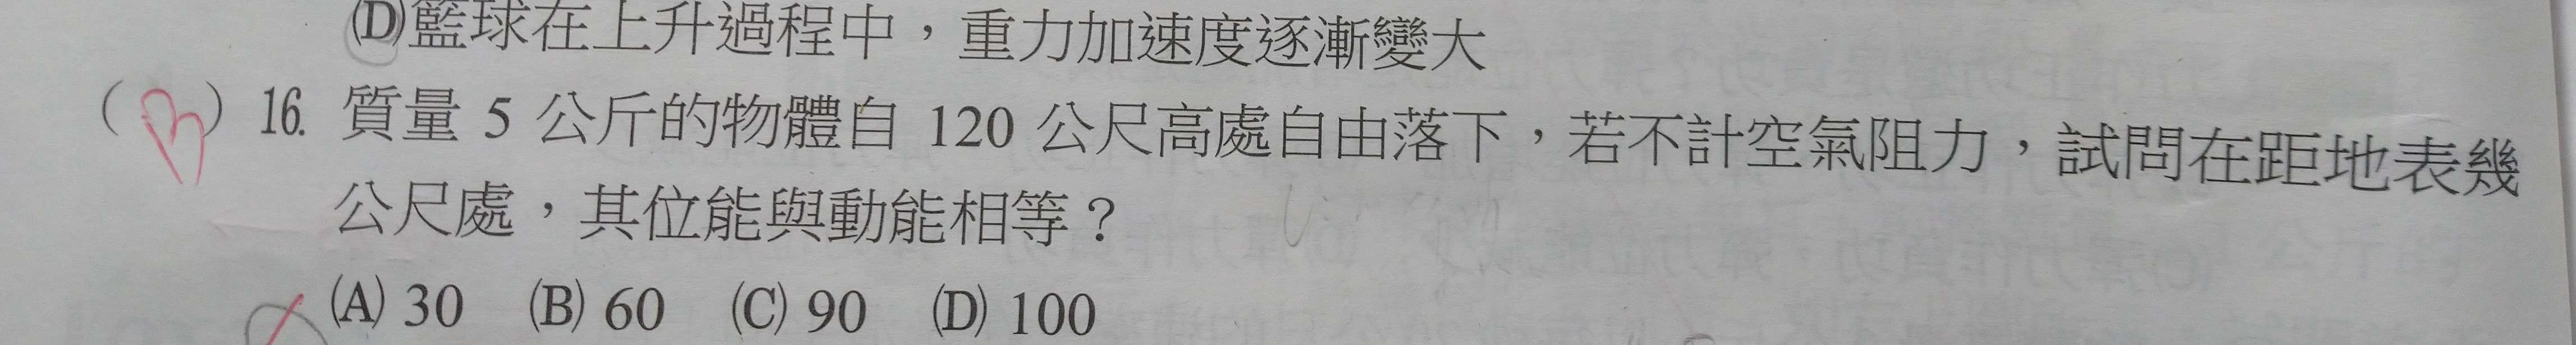 (D)籃球在上升過程中，重力加速度逐漸變大
(B) 16. 質量 5 公斤的物體自 120 公尺高處自由落下，若不計空氣阻力，試問在距地表幾
公尺處，其位能與動能相等？
(A) 30 (B) 60 (C) 90 (D) 100